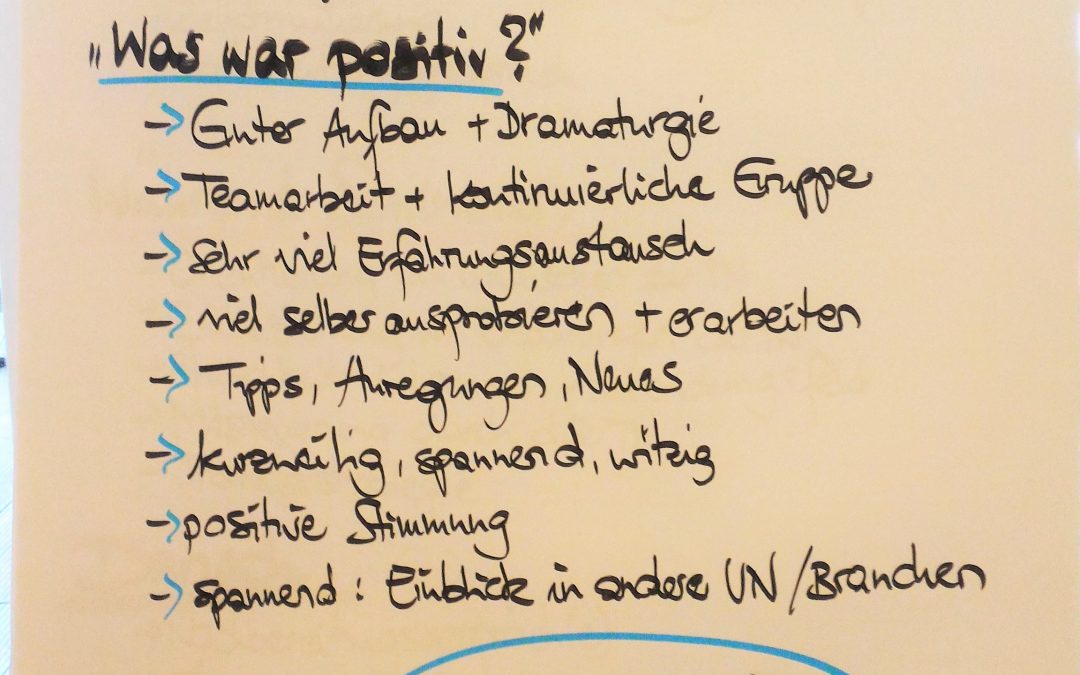 „Was war positiv?"
→ Guter Aufbau + Dramaturgie
→ Teamarbeit + kontinuierliche Gruppe
→ Sehr viel Erfahrungsaustausch
→ viel selber ausprobieren + erarbeiten
→ Tipps, Anregungen, Neues
→ kurzweilig, spannend, witzig
→ positive Stimmung
→ spannend: Einblick in andere UN/Branchen